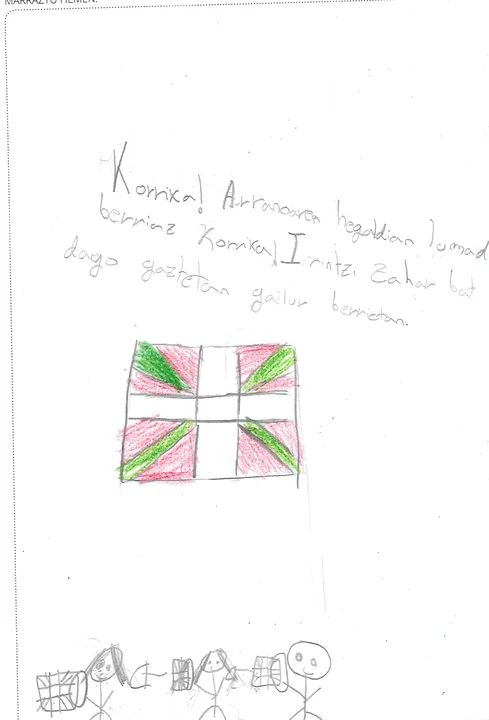 MARRAZTU HEMEN:
Korrika! Arranoaren hegaldian lumad
berriaz Korrika! Irrintzi Zahar bat
dago gaztetan gailur berrietan.